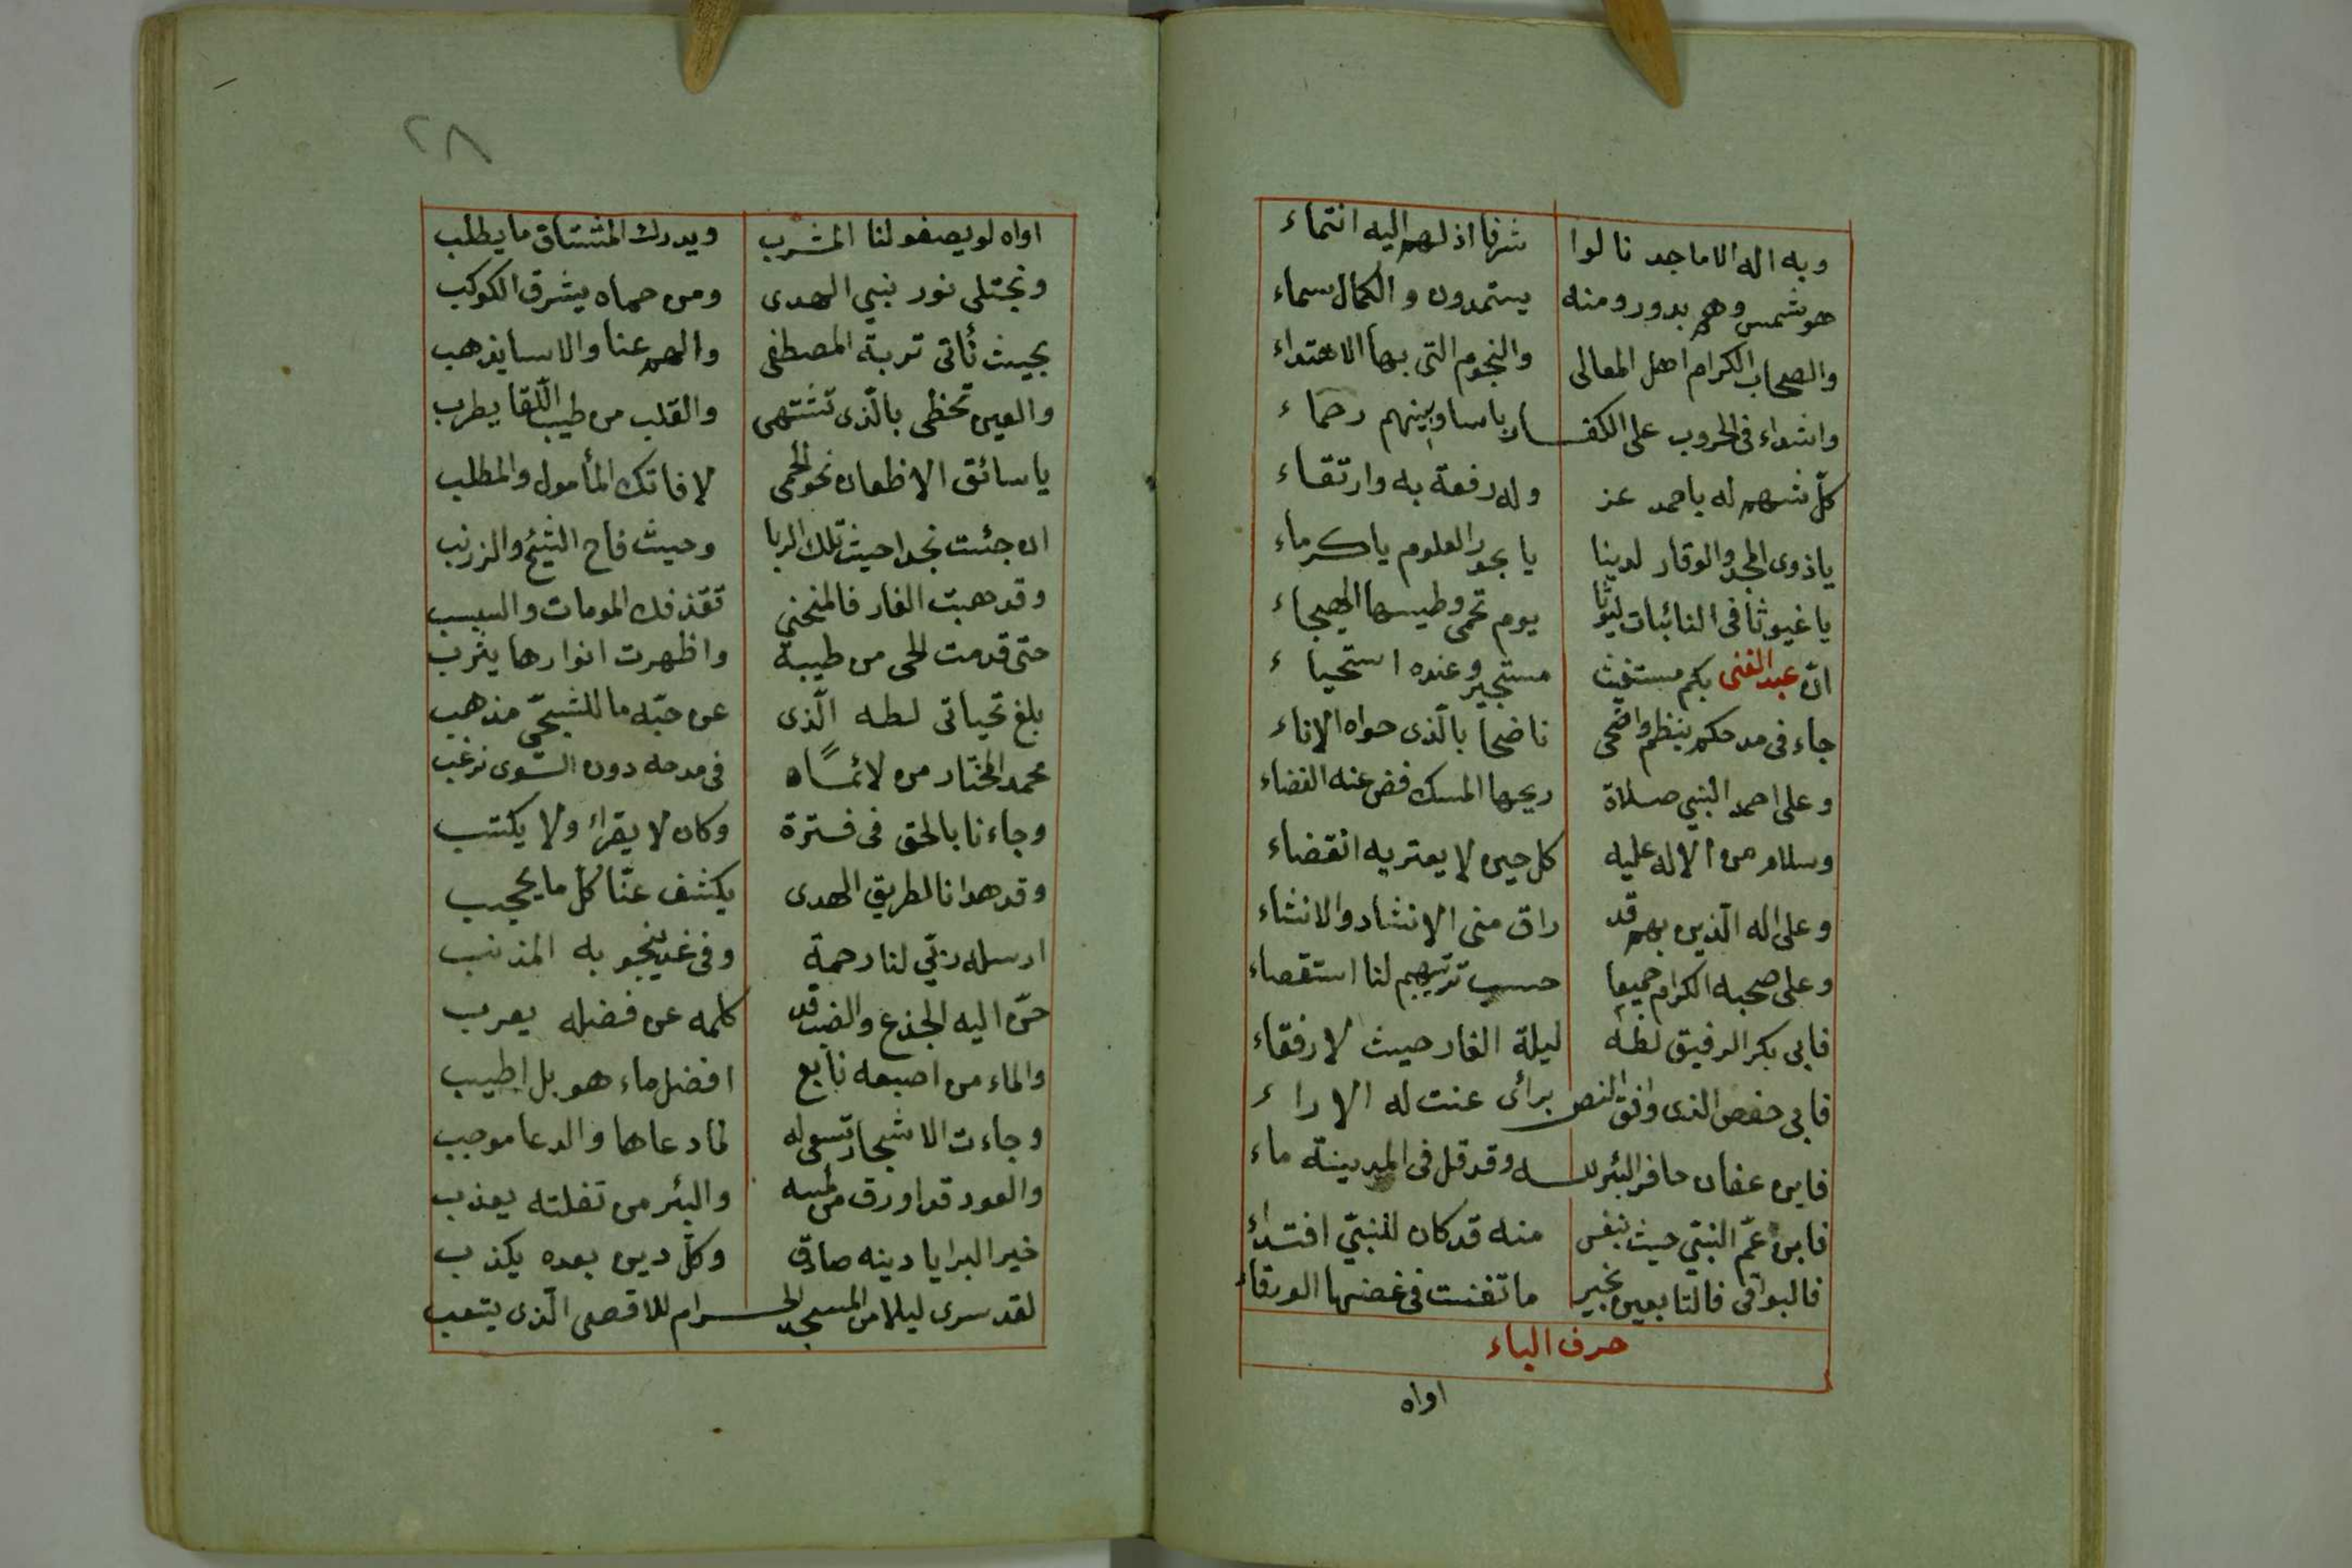 وبه اله الاماجد نالوا شرفا اذ لهم اليه انتماء
هو شمس وهم بدور ومنه يستمدون والكمال سماء
والصحاب الكرام اهل المعالى والنجوم التى بها الاهتداء
واشداء فى الحروب على الكفار باسا وبينهم رحماء
كلّ شهم له باحمد عز وله رفعة به وارتقاء
ياذوى المجد والوقار لدينا يا بحور العلوم ياكرماء
ياغيوثا فى النائبات ليوثا يوم تحمى وطيسها الهيجاء
انّ عبد الغنى بكم مستغيث مستجير وعنده استحياء
جاء فى مدحكم بنظم واضحى ناضحا بالّذى حواه الاناء
وعلى احمد النبي صلاة ريحها المسك فض عنه الفضاء
وسلام من الاله عليه كل حين لا يعتريه انقضاء
وعلى اله الّذين بهم قد راق منى الانشاد والانشاء
وعلى صحبه الكرام جميعا حسب ترتيبهم لنا استقصاء
فابى بكر الرفيق لطه ليلة الغار حيث لا رفقاء
فابى حفص الذى وافق النص برأى عنت له الاراء
فابن عفان حافر البئر لله وقد قل فى المدينة ماء
فابن عمّ النبّي حيث بنفس منه قد كان للنبيّ افتداء
فالبواقى فالتابعين بخير ما تغنت فى غصنها الورقاء
حرف الباء
اواه
٢٨
اواه لو يصفو لنا المشرب ويدرك المشتاق ما يطلب
ونجتلى نور نبي الهدى ومن حماه يشرق الكوكب
بحيث نأتى تربة المصطفى والهم عنا والاسا يذهب
والعين تحظى بالّذى تشتهى والقلب من طيب اللّقا يطرب
ياسائق الاظعان نحو الحمى لا فاتك المأمول والمطلب
ان جئت نجدا حيث تلك الربا وحيث فاح الشيح والزرنب
وقد هبت الغار فالمنحنى تقذفك المومات والسبسب
حتى قدمت الحى من طيبة واظهرت انوارها يثرب
بلغ تحياتى لطه الّذى عن حبّه ما للشجىّ مذهب
محمد المختار من لا فى مدحه دون السّوى نرغب
وجاءنا بالحق فى فترة وكان لا يقرأ ولا يكتب
وقد هدانا لطريق الهدى يكشف عنّا كلّ ما يحجب
ارسله ربّي لنا رحمة وفى غد ينجو به المذنب
حنّ اليه الجذع والضب قد كلمه عن فضله يعرب
والماء من اصبعه نابع افضل ماء هو بل اطيب
وجاءت الاشجار تسعى له لما دعاها والدعا موجب
والعود قد اورق من لمسه والبئر من تفلته يعذب
خير البرايا دينه صادق وكلّ دين بعده يكذب
لقد سرى ليلا من المسجد الحرام للاقصى الّذى يتعب